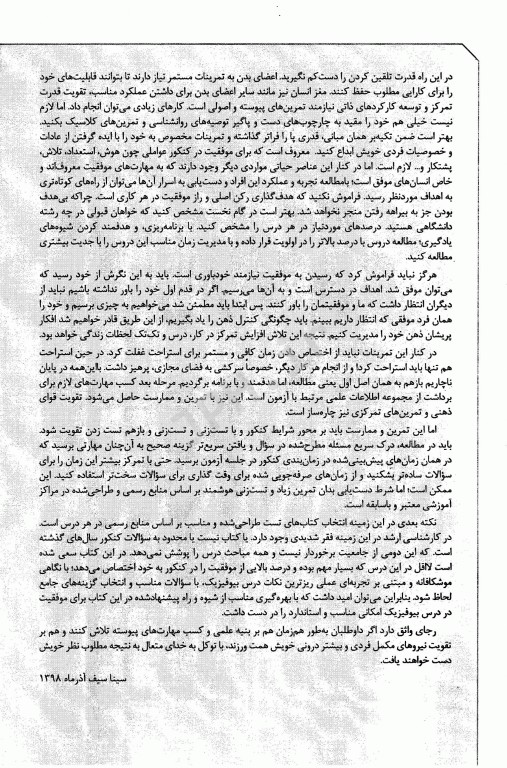 در این راه قدرت تلقین کردن را دست‌کم نگیرید. اعضای بدن به تمرینات مستمر نیاز دارند تا بتوانند قابلیت‌های خود
را برای کارایی مطلوب حفظ کنند. مغز انسان نیز مانند سایر اعضای بدن برای داشتن عملکرد مناسب، تقویت قدرت
تمرکز و توسعه کارکردهای ذاتی نیازمند تمرین‌های پیوسته و اصولی است. کارهای زیادی می‌توان انجام داد. اما لازم
نیست خیلی هم خود را مقید به چارچوب‌های دست و پاگیر توصیه‌های روانشناسی و تمرین‌های کلاسیک بکنید.
بهتر است ضمن تکیه‌بر همان مبانی، قدری پا را فراتر گذاشته و تمرینات مخصوص به خود را با ایده گرفتن از عادات
و خصوصیات فردی خویش ابداع کنید. معروف است که برای موفقیت در کنکور عواملی چون هوش، استعداد، تلاش،
پشتکار و... لازم است. اما در کنار این عناصر حیاتی مواردی دیگر وجود دارند که به مهارت‌های موفقیت معروف‌اند و
خاص انسان‌های موفق است؛ بامطالعه تجربه و عملکرد این افراد و دست‌یابی به اسرار آن‌ها می‌توان از راه‌های کوتاه‌تری
به اهداف موردنظر رسید. فراموش نکنید که هدف‌گذاری رکن اصلی و راز موفقیت در هر کاری است. چراکه بی‌هدف
بودن جز به بیراهه رفتن منجر نخواهد شد. بهتر است در گام نخست مشخص کنید که خواهان قبولی در چه رشته
دانشگاهی هستید. درصدهای موردنیاز در هر درس را مشخص کنید. با برنامه‌ریزی، و هدفمند کردن شیوه‌های
یادگیری؛ مطالعه دروس با درصد بالاتر را در اولویت قرار داده و با مدیریت زمان مناسب این دروس را با جدیت بیشتری
مطالعه کنید.
هرگز نباید فراموش کرد که رسیدن به موفقیت نیازمند خودباوری است. باید به این نگرش از خود رسید که
می‌توان موفق شد. اهداف در دسترس است و به آن‌ها می‌رسیم. اگر در قدم اول خود را باور نداشته باشیم نباید از
دیگران انتظار داشت که ما و موفقیتمان را باور کنند. پس ابتدا باید مطمئن شد می‌خواهیم به چیزی برسیم و خود را
همان فرد موفقی که انتظار داریم ببینیم. باید چگونگی کنترل ذهن را یاد بگیریم، از این طریق قادر خواهیم شد افکار
پریشان ذهن خود را مدیریت کنیم. نتیجه این تلاش افزایش تمرکز در کار، درس و تک‌تک لحظات زندگی خواهد بود.
در کنار این تمرینات نباید از اختصاص دادن زمان کافی و مستمر برای استراحت غفلت کرد. در حین استراحت
هم تنها باید استراحت کرد! و از انجام هر کار دیگر، خصوصاً سرکشی به فضای مجازی، پرهیز داشت. بااین‌همه در پایان
ناچاریم بازهم به همان اصل اول یعنی مطالعه، اما هدفمند و با برنامه برگردیم. مرحله بعد کسب مهارت‌های لازم برای
برداشت از مجموعه اطلاعات علمی مرتبط با آزمون است. این نیز با تمرین و ممارست حاصل می‌شود. تقویت قوای
ذهنی و تمرین‌های تمرکزی نیز چاره‌ساز است.
اما این تمرین و ممارست باید بر محور شرایط کنکور و با تست‌زنی و تست‌زنی و بازهم تست زدن تقویت شود.
باید در مطالعه، درک سریع مسئله مطرح‌شده در سؤال و یافتن سریع‌تر گزینه صحیح به آن‌چنان مهارتی برسید که
در همان زمان‌های پیش‌بینی‌شده در زمان‌بندی کنکور در جلسه آزمون برسید. حتی با تمرکز بیشتر این زمان را برای
سؤالات ساده‌تر بشکنید و از زمان‌های صرفه‌جویی شده برای وقت گذاری برای سؤالات سخت‌تر استفاده کنید. این
ممکن است؛ اما شرط دست‌یابی بدان تمرین زیاد و تست‌زنی هوشمند بر اساس منابع رسمی و طراحی‌شده در مراکز
آموزشی معتبر و باسابقه است.
نکته بعدی در این زمینه انتخاب کتاب‌های تست طراحی‌شده و مناسب بر اساس منابع رسمی در هر درس است.
در کارشناسی ارشد در این زمینه فقر شدیدی وجود دارد. یا کتاب نیست یا محدود به سؤالات کنکور سال‌های گذشته
است. که این دومی از جامعیت برخوردار نیست و همه مباحث درس را پوشش نمی‌دهد. در این کتاب سعی شده
است لااقل در این درس که بسیار مهم بوده و درصد بالایی از موفقیت را در کنکور به خود اختصاص می‌دهد؛ با نگاهی
موشکافانه و مبتنی بر تجربه‌ای عملی ریزترین نکات درس بیوفیزیک، با سؤالات مناسب و انتخاب گزینه‌های جامع
لحاظ شود. بنابراین می‌توان امید داشت که با بهره‌گیری مناسب از شیوه و راه پیشنهادشده در این کتاب برای موفقیت
در درس بیوفیزیک امکانی مناسب و استاندارد را در دست داشت.
رجای واثق دارد اگر داوطلبان به‌طور هم‌زمان هم بر بنیه علمی و کسب مهارت‌های پیوسته تلاش کنند و هم بر
تقویت نیروهای مکمل فردی و بیشتر درونی خویش همت ورزند، با توکل به خدای متعال به نتیجه مطلوب نظر خویش
دست خواهند یافت.
سینا سیف آذرماه ۱۳۹۸